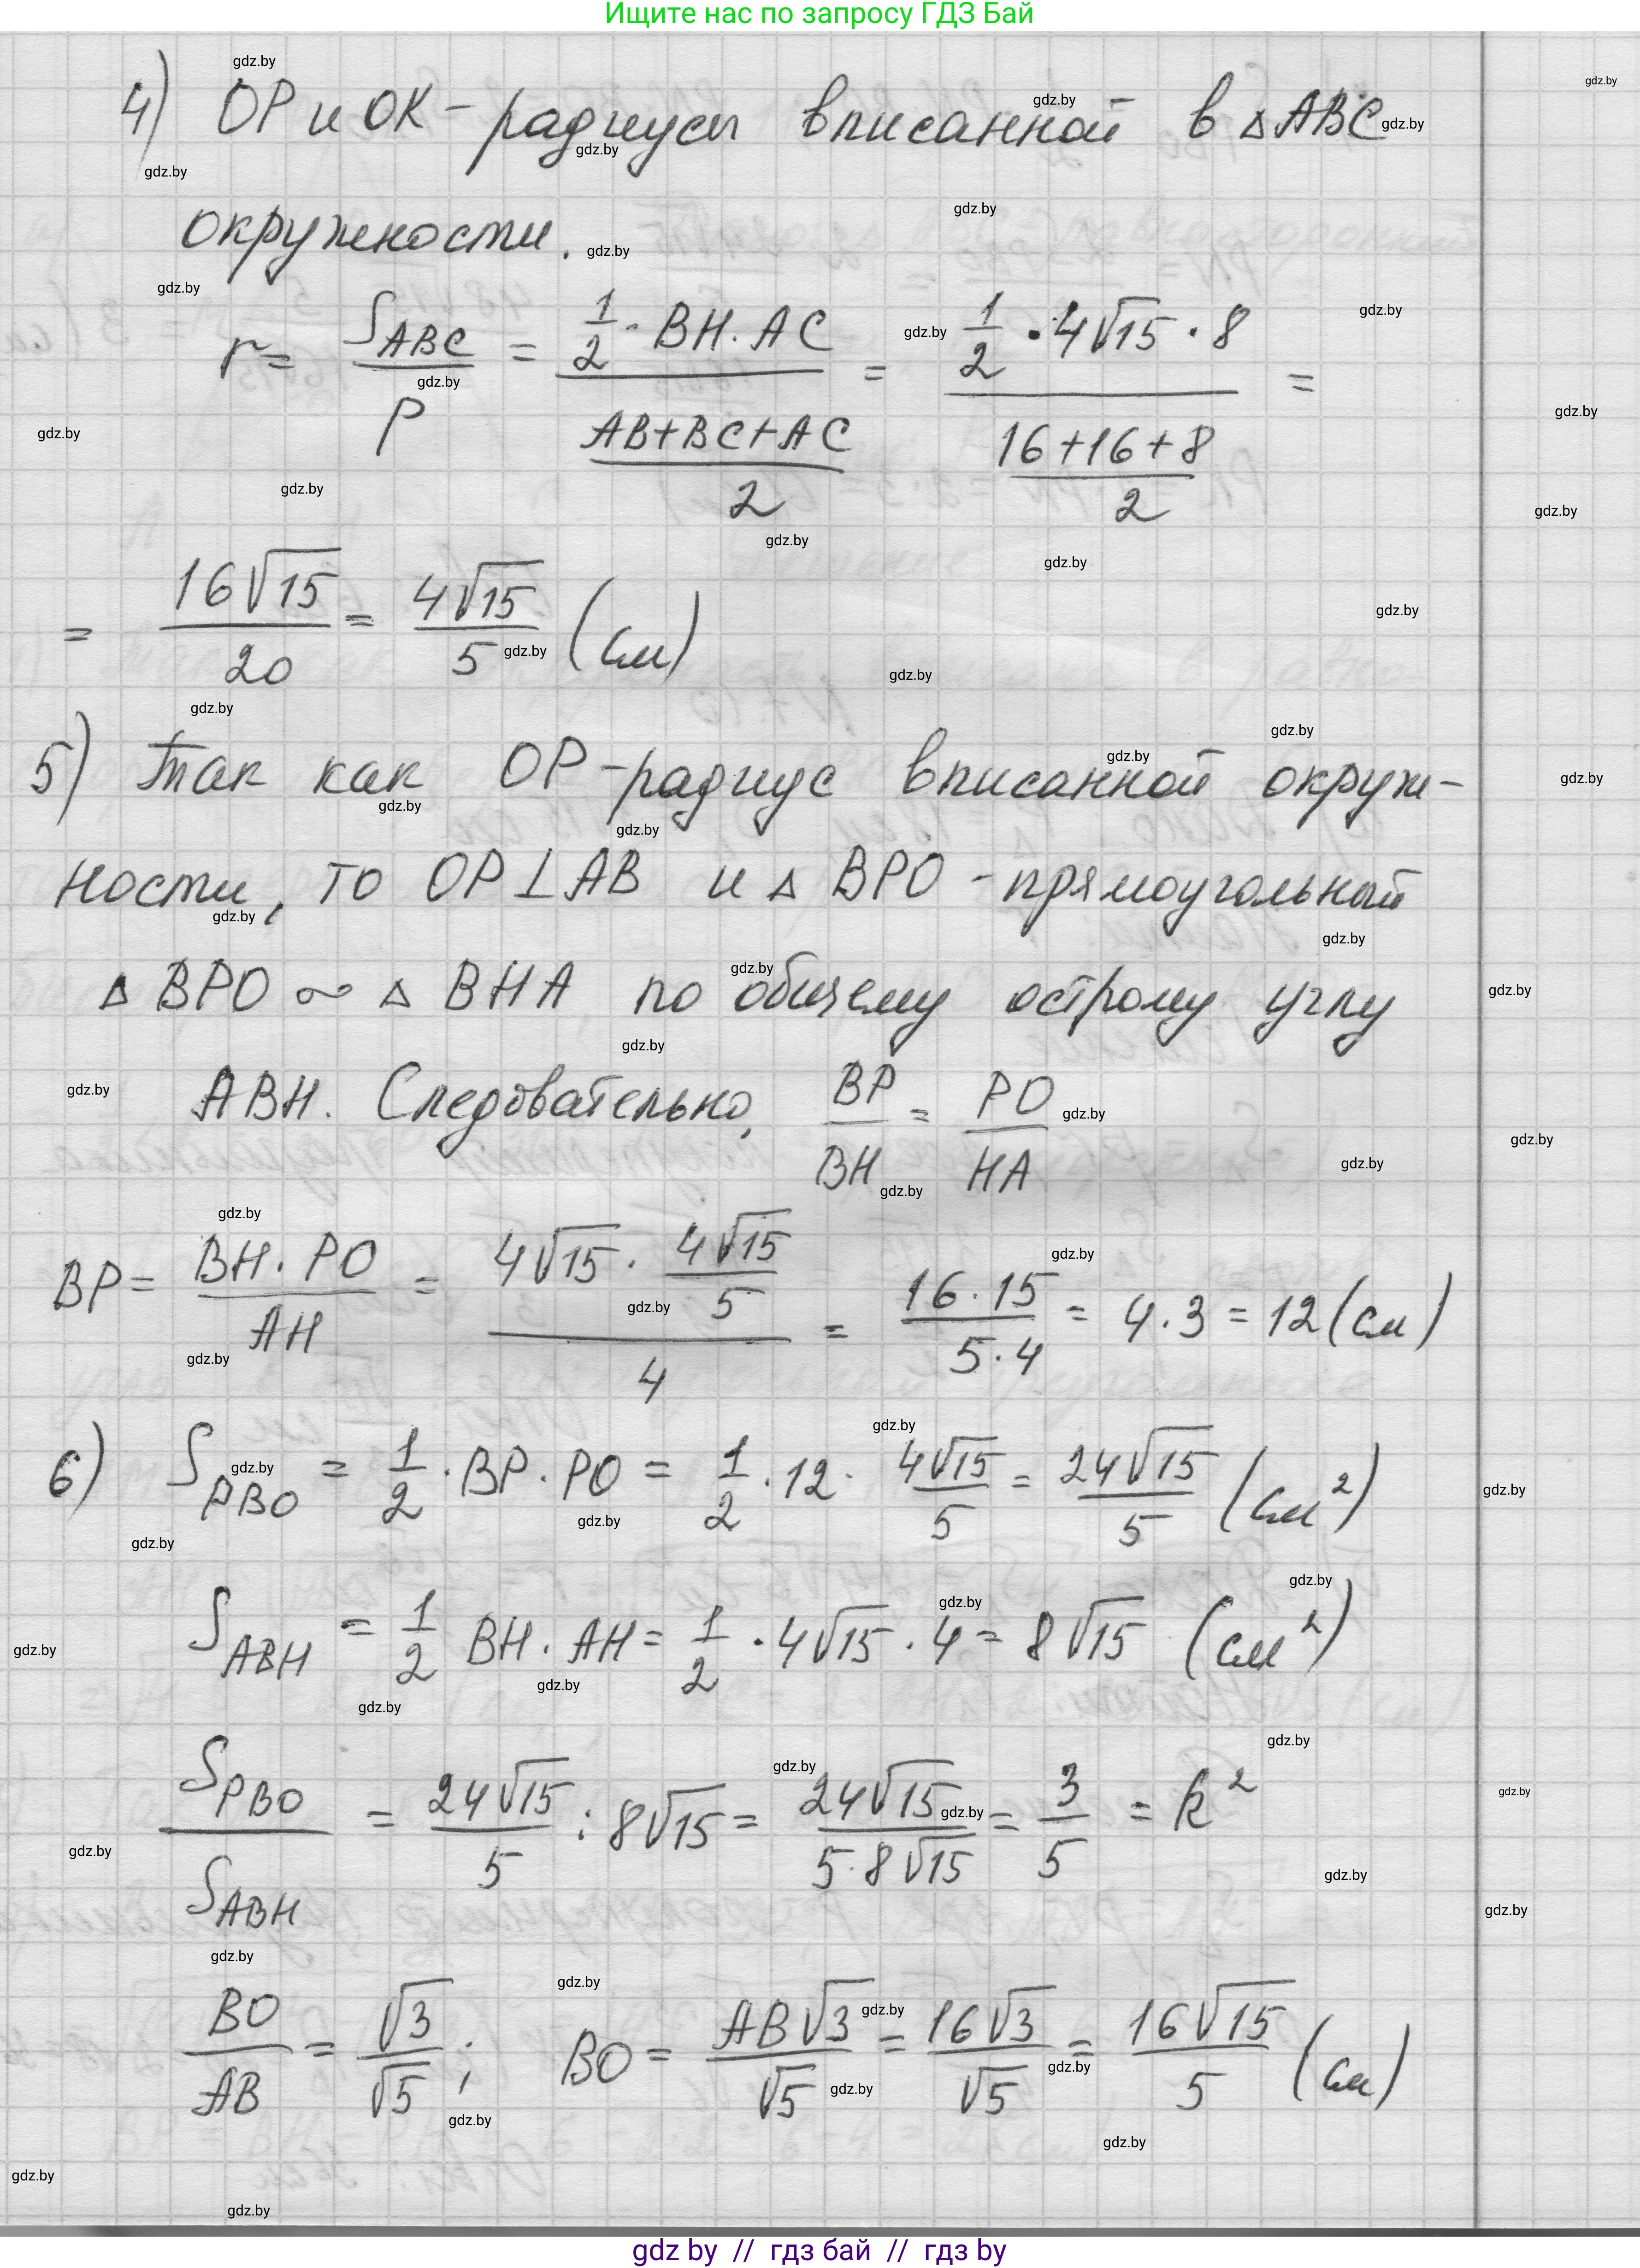 Ищите нас по запросу ГДЗ Бай
4) OP и OK - радиусы вписанной в △ABC
окружности.
r = S_ABC / p = (1/2 · BH · AC) / ((AB+BC+AC)/2) = (1/2 · 4√15 · 8) / ((16+16+8)/2) =
= 16√15/20 = 4√15/5 (см)
5) Так как OP - радиус вписанной окруж-
ности, то OP ⊥ AB и △ BPO - прямоугольный
△ BPO ∾ △ BHA по общему острому углу
ABH. Следовательно, BP/BH = PO/HA
BP = BH · PO / AH = (4√15 · 4√15/5) / 4 = 16 · 15 / 5 · 4 = 4 · 3 = 12 (см)
6) S_PBO = 1/2 · BP · PO = 1/2 · 12 · 4√15/5 = 24√15/5 (см²)
S_ABH = 1/2 BH · AH = 1/2 · 4√15 · 4 = 8√15 (см²)
S_PBO / S_ABH = 24√15/5 : 8√15 = 24√15 / 5·8√15 = 3/5 = k²
BO/AB = √3/√5 ; BO = AB√3/√5 = 16√3/√5 = 16√15/5 (см)
gdz by // гдз бай // гдз by